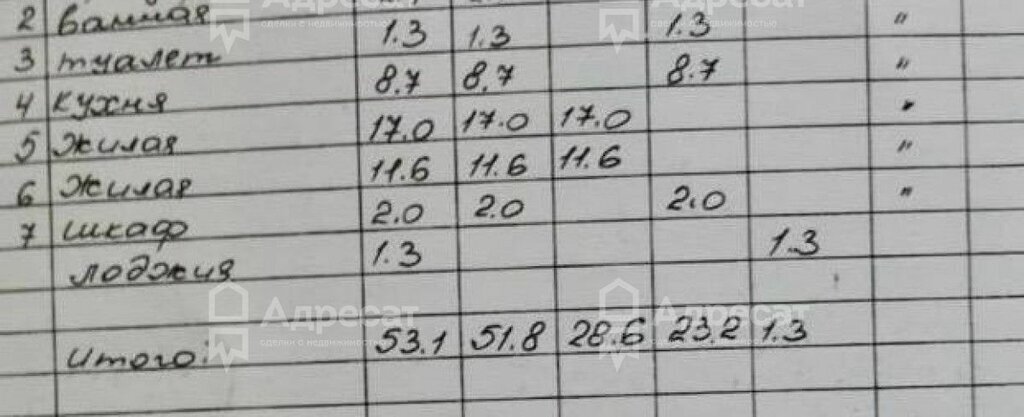 2 ванная
3 туалет 1.3 1.3 1.3 "
4 кухня 8.7 8.7 8.7 "
5 жилая 17.0 17.0 17.0 "
6 жилая 11.6 11.6 11.6 "
7 шкаф 2.0 2.0 2.0 "
лоджия 1.3 1.3
Итого: 53.1 51.8 28.6 23.2 1.3
Адресат
сделки с недвижимостью
Адресат
сделки с недвижимостью
Адресат
сделки с недвижимостью
Адресат
сделки с недвижимостью